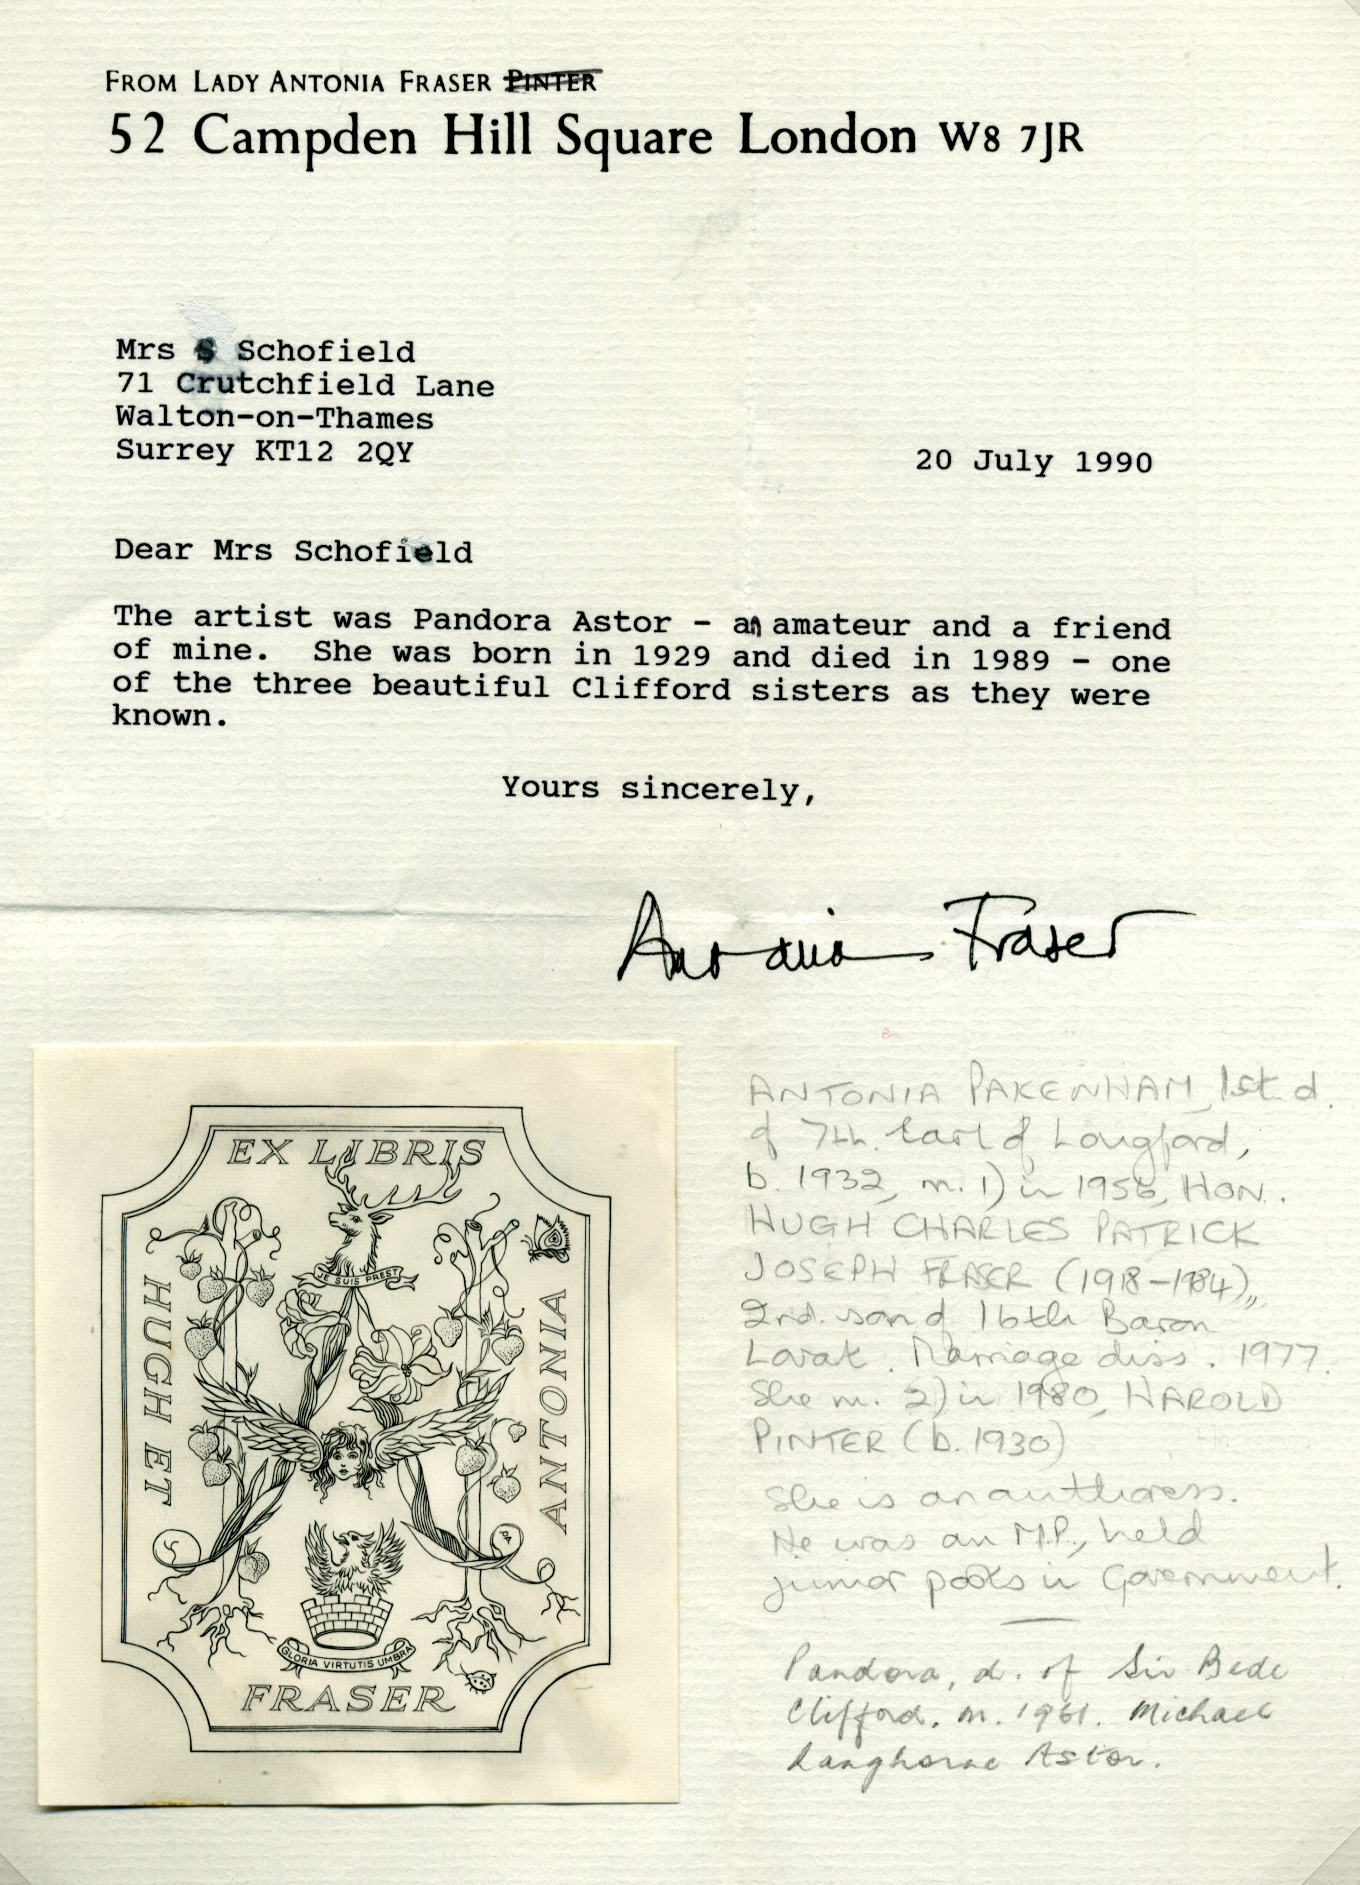 FROM LADY ANTONIA FRASER PINTER
52 Campden Hill Square London W8 7JR
Mrs S Schofield
71 Crutchfield Lane
Walton-on-Thames
Surrey KT12 2QY
20 July 1990
Dear Mrs Schofield
The artist was Pandora Astor - an amateur and a friend
of mine. She was born in 1929 and died in 1989 - one
of the three beautiful Clifford sisters as they were
known.
Yours sincerely,
Antonia Fraser
EX LIBRIS
JE SUIS PREST
HUGH ET
ANTONIA
GLORIA VIRTUTIS UMBRA
FRASER
ANTONIA PAKENHAM, 1st d.
of 7th. Earl of Longford,
b. 1932, m. 1) in 1956, HON.
HUGH CHARLES PATRICK
JOSEPH FRASER (1918-1984),
2nd. son of 16th Baron
Lovat. Marriage diss. 1977.
She m. 2) in 1980, HAROLD
PINTER (b. 1930)
She is an authoress.
He was an M.P., held
junior posts in Government.
Pandora, d. of Sir Bede
Clifford. m. 1961. Michael
Langhorne Astor.